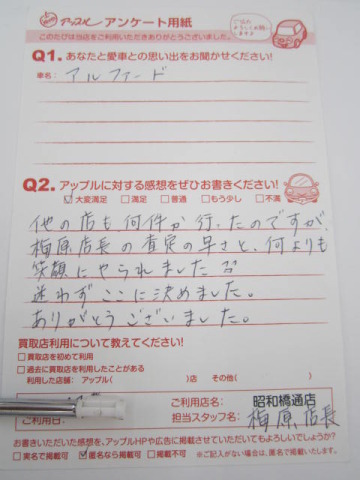 アップル アンケート用紙
このたびは当店をご利用いただきありがとうございました。
Q1. あなたと愛車との思い出をお聞かせください!
車名: アルファード
Q2. アップルに対する感想をぜひお書きください!
☑大変満足 □満足 □普通 □もう少し □不満
他の店も何件か行ったのですが、
梅原店長の査定の早さと、何よりも
笑顔にやられました
迷わずここに決めました。
ありがとうございました。
買取店利用について教えてください!
□買取店を初めて利用
□過去に買取店を利用したことがある
利用した店舗: アップル( )店 その他( )
ご利用店名: 昭和橋通店
ご利用日:
担当スタッフ名: 梅原店長
お書きいただいた感想を、アップルHPや広告に掲載させていただいてもよろしいでしょうか?
□実名で掲載可 ☑匿名なら掲載可 □掲載不可 ※ご記入がない場合は、匿名で掲載いたします。